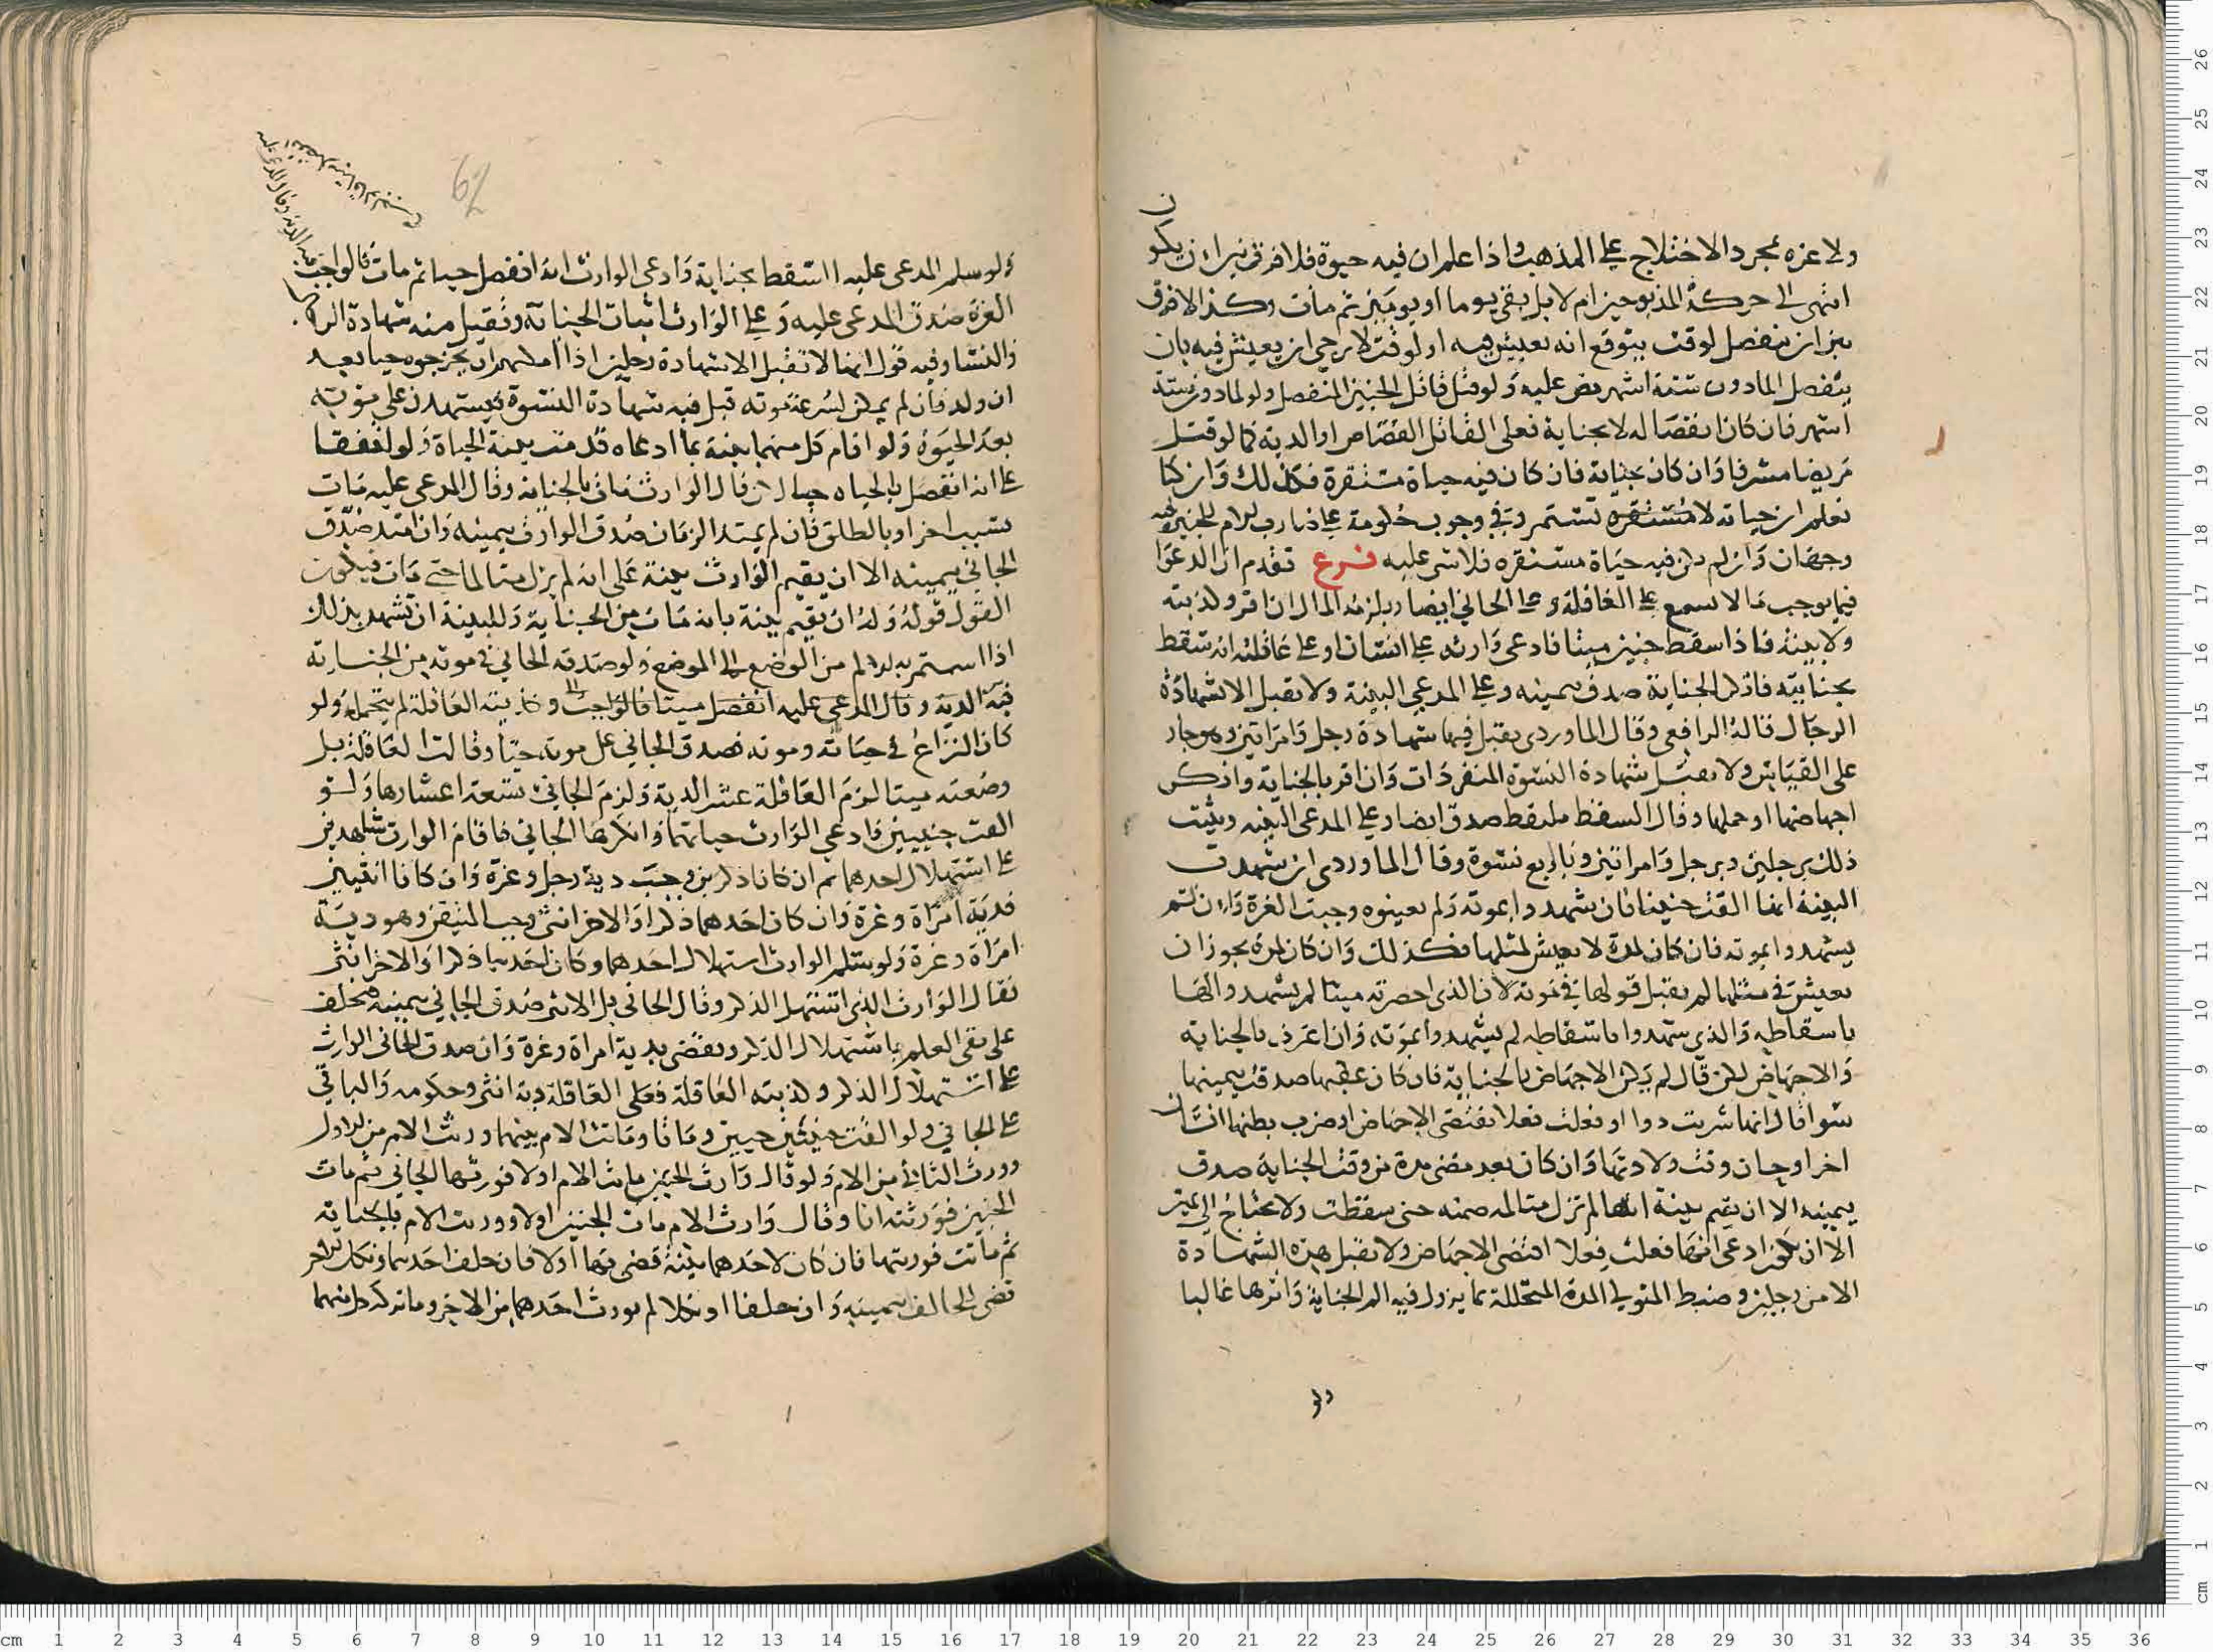 ولا عزه بمجرد الاختلاج على المذهب واذا علم ان فيه حيوة فلا فرق بين ان يكون
انتهى الى حركة المذبوحين ام لا بل بقي يوما او يومين ثم مات وكذا لا فرق
بين ان ينفصل لوقت يتوقع انه يعيش فيه او لوقت لا يرجى ان يعيش فيه بان
ينفصل لما دون ستة اشهر نص عليه ولو قتل قاتل الجنين المنفصل ولو لما دون ستة
اشهر فان كان انفصاله لا بجناية فعلى القاتل القصاص او الدية كما لو قتل
مريضا مشرفا وان كان بجناية فان كان فيه حياة مستقرة فكذلك وان كنا
نعلم ان حياته لا تستمر وفي وجوب حكومة على ضارب الام للجنين فيه
وجهان وان لم يكن فيه حياة مستقره فلا شى عليه فرع تقدم ان الدعوا
فيما يوجب مالا تسمع على العاقلة و على الجاني ايضا ويلزمه المال ان اقر وكذبته
ولا بينة فاذا سقط جنين ميتا فادعى وارثه على انسان او على عاقلته انه سقط
بجنايته فانكر الجناية صدق بيمينه وعلى المدعي البينة ولا تقبل الا شهادة
الرجال قاله الرافعي وقال الماوردي يقبل فيها شهادة رجل وامراتين وهو جار
على القياس ولا يقبل شهادة النسوة المنفردات وان اقر بالجناية وانكر
اجهاضها او حملها وقال السقط ملتقط صدق ايضا وعلى المدعى البينه ويثبت
ذلك برجلين وبرجل وامراتين وباربع نسوة وقال الماوردى ان شهدت
البينة انها القت جنينا فان شهدوا بموته ولم يعينوه وجبت الغرة وان لم
يشهدوا بموته فان كان لمدة لا يعيش لمثلها فكذلك وان كان لمدة يجوز ان
يعيش في مثلها لم يقبل قولها في موته لان الذى احضرته ميتا لم يشهدوا لها
باسقاطه والذي شهدوا باسقاطه لم يشهدوا بموته وان اعترف بالجناية
والاجهاض لكن قال لم يكن الاجهاض بالجناية فان كان عقبها صدقت بيمينها
سوا قال انها شربت دوا او فعلت فعلا يقتضي الاجهاض او ضرب بطنها انسان
اخر او حان وقت ولادتها وان كان بعد مضى مدة من وقت الجناية صدق
بيمينه الا ان تقيم بينة انها لم تزل متالمه ضمنه حتى سقطت ولا يحتاج الى يمين
الا ان يكون ادعى انها فعلت فعلا اقتضى الاجهاض ولا تقبل هذه الشهادة
الا من رجلين وضبط المتولي المدة المتخللة بما يزول فيه الم الجناية واثرها غالبا
ولو
62
ولو سلم المدعى عليه السقط بجناية وادعى الوارث انه انفصل حيا ثم مات فالواجب
الغرة صدق المدعى عليه وعلى الوارث اثبات الجناية وتقبل منه شهادة الرجال
والنسا وفيه قول انها لا تقبل الا شهادة رجلين اذا امكنهم ان يخرجوه حيا بعد
ان ولد فان لم يمكن لسرعة موته قبل فيه شهادة النسوة فيشهدن على موته
بعد الحيوة ولو اقام كل منهما بينة بما ادعاه قدمت بينة الحياة ولو اتفقا
على انه انفصل حيا لكن قال الوارث مات بالجناية وقال المدعى عليه مات
بسبب اخر او بالطلق فان لم يمتد الزمان صدق الوارث بيمينه وان امتد صدق
الجاني بيمينه الا ان يقيم الوارث بينة على انه لم يزل متالما حتى مات فيكون
القول قوله وله ان يقيم بينة بانه مات من الجناية وللبينة ان تشهد بذلك
اذا استمر به الالم من الوضع الى الموضع ولو صدقه الجاني في موته من الجناية
فيه الدية وقال المدعى عليه انفصل ميتا فالواجب وكذبته العاقلة لم يتحمله ولو
كان النزاع في حياته وموته فصدق الجاني على موته حيا وقالت العاقلة بل
وضعته ميتا لزم العاقلة عشر الدية ولزم الجاني تسعة اعشارها ولو
القت جنينين فادعى الوارث حياتهما وانكرها الجاني فاقام الوارث شاهدين
على استهلال احدهما ثم ان كانا ذكرين وجبت دية رجل وغرة وان كانا انثيين
فدية امراة وغرة وان كان احدهما ذكرا والاخر انثى وجب اليقين وهو دية
امراة وغرة ولو سلم الوارث استهلال احدهما وكان احدهما ذكرا والاخر انثى
فقال الوارث الذي استهل الذكر وقال الجاني بل الانثى صدق الجاني بيمينه فيحلف
على نفي العلم باستهلال الذكر ويقضى بدية امراة وغرة وان صدق الجاني الوارث
على استهلال الذكر وكذبته العاقلة فعلى العاقلة دية انثى وحكومه والباقي
على الجاني ولو القت جنينين حيين وماتا وماتت الام بينهما ورثت الام من الاول
وورث الثاني من الام ولو قال وارث الجنين ماتت الام اولا فورثها الجاني ثم مات
الجنين فورثته انا وقال وارث الام مات الجنين اولا وورثت الام بالجناية
ثم ماتت فورثتها فان كان لاحدهما بينة قضى بها اولا فان حلف احدهما ونكل الاخر
قضى للحالف بيمينه وان حلفا او نكلا لم يورث احدهما من الاخر وما تركه كل منهما